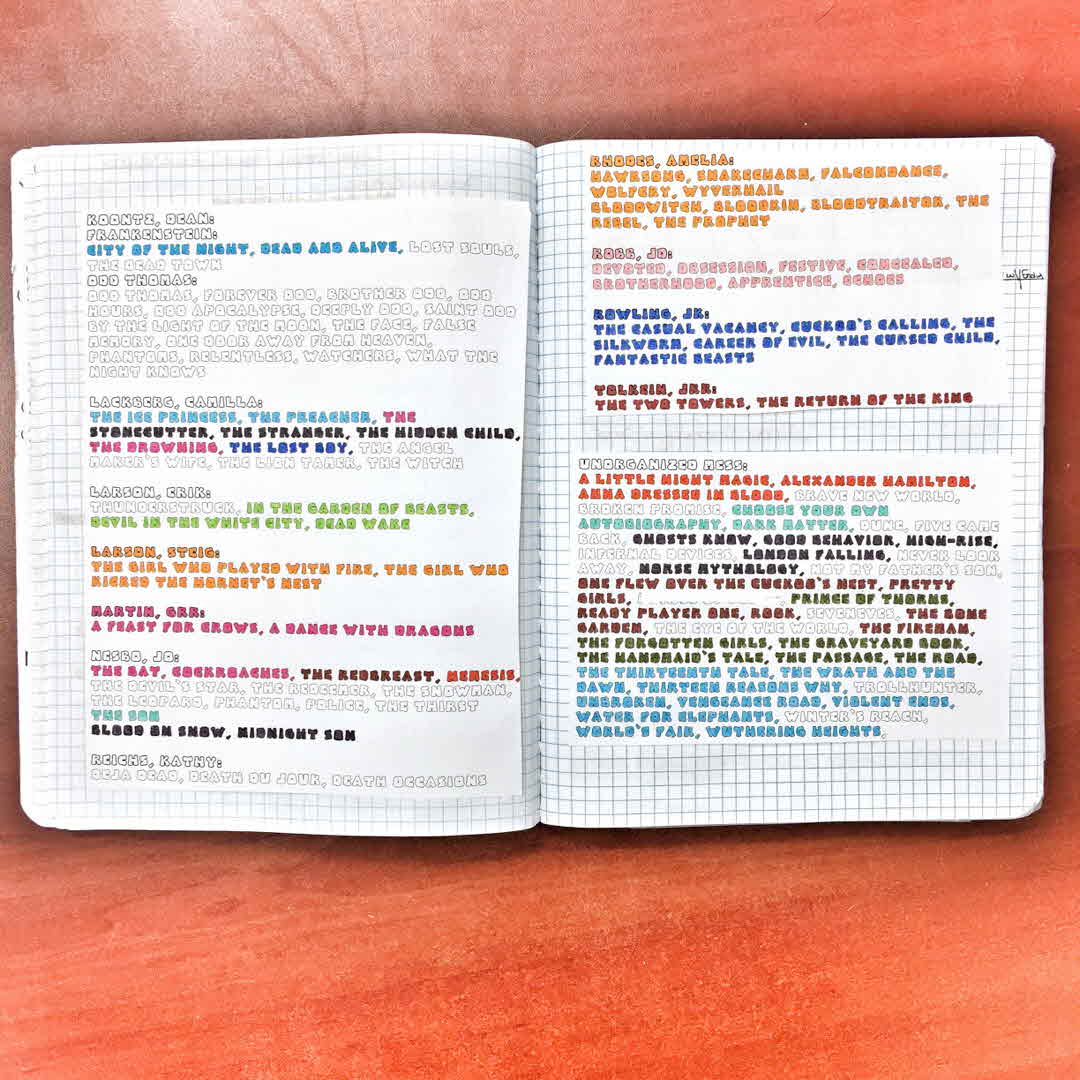 KOONTZ, DEAN:
FRANKENSTEIN:
CITY OF THE NIGHT, DEAD AND ALIVE, LOST SOULS,
THE DEAD TOWN
ODD THOMAS:
ODD THOMAS, FOREVER ODD, BROTHER ODD, ODD
HOURS, ODD APOCALYPSE, DEEPLY ODD, SAINT ODD
BY THE LIGHT OF THE MOON, THE FACE, FALSE
MEMORY, ONE DOOR AWAY FROM HEAVEN,
PHANTOMS, RELENTLESS, WATCHERS, WHAT THE
NIGHT KNOWS
LACKBERG, CAMILLA:
THE ICE PRINCESS, THE PREACHER, THE
STONECUTTER, THE STRANGER, THE HIDDEN CHILD,
THE DROWNING, THE LOST BOY, THE ANGEL
MAKER'S WIFE, THE LION TAMER, THE WITCH
LARSON, ERIK:
THUNDERSTRUCK, IN THE GARDEN OF BEASTS,
DEVIL IN THE WHITE CITY, DEAD WAKE
LARSON, STEIG:
THE GIRL WHO PLAYED WITH FIRE, THE GIRL WHO
KICKED THE HORNET'S NEST
MARTIN, GRR:
A FEAST FOR CROWS, A DANCE WITH DRAGONS
NESBO, JO:
THE BAT, COCKROACHES, THE REDBREAST, NEMESIS,
THE DEVIL'S STAR, THE REDEEMER, THE SNOWMAN,
THE LEOPARD, PHANTOM, POLICE, THE THIRST
THE SON
BLOOD ON SNOW, MIDNIGHT SON
REICHS, KATHY:
DEJA DEAD, DEATH DU JOUR, DEATH OCCASIONS
RHODES, AMELIA:
HAWKSONG, SNAKECHARM, FALCONDANCE,
WOLFCRY, WYVERNHAIL
BLOODWITCH, BLOODKIN, BLOODTRAITOR, THE
REBEL, THE PROPHET
ROBB, JD:
DEVOTED, OBSESSION, FESTIVE, CONCEALED,
BROTHERHOOD, APPRENTICE, ECHOES
ROWLING, JK:
THE CASUAL VACANCY, CUCKOO'S CALLING, THE
SILKWORM, CAREER OF EVIL, THE CURSED CHILD,
FANTASTIC BEASTS
TOLKEIN, JRR:
THE TWO TOWERS, THE RETURN OF THE KING
UNORGANIZED MESS:
A LITTLE NIGHT MAGIC, ALEXANDER HAMILTON,
ANNA DRESSED IN BLOOD, BRAVE NEW WORLD,
BROKEN PROMISE, CHOOSE YOUR OWN
AUTOBIOGRAPHY, DARK MATTER, DUNE, FIVE CAME
BACK, GHOSTS KNOW, GOOD BEHAVIOR, HIGH-RISE,
INFERNAL DEVICES, LONDON FALLING, NEVER LOOK
AWAY, NORSE MYTHOLOGY, NOT MY FATHER'S SON,
ONE FLEW OVER THE CUCKOO'S NEST, PRETTY
GIRLS, PRINCE OF THORNS,
READY PLAYER ONE, ROOK, SEVENEVES, THE BONE
GARDEN, THE EYE OF THE WORLD, THE FIREMAN,
THE FORGOTTEN GIRLS, THE GRAVEYARD BOOK,
THE HANDMAID'S TALE, THE PASSAGE, THE ROAD,
THE THIRTEENTH TALE, THE WRATH AND THE
DAWN, THIRTEEN REASONS WHY, TROLLHUNTER,
UNBROKEN, VENGEANCE ROAD, VIOLENT ENDS,
WATER FOR ELEPHANTS, WINTER'S REACH,
WORLD'S FAIR, WUTHERING HEIGHTS,